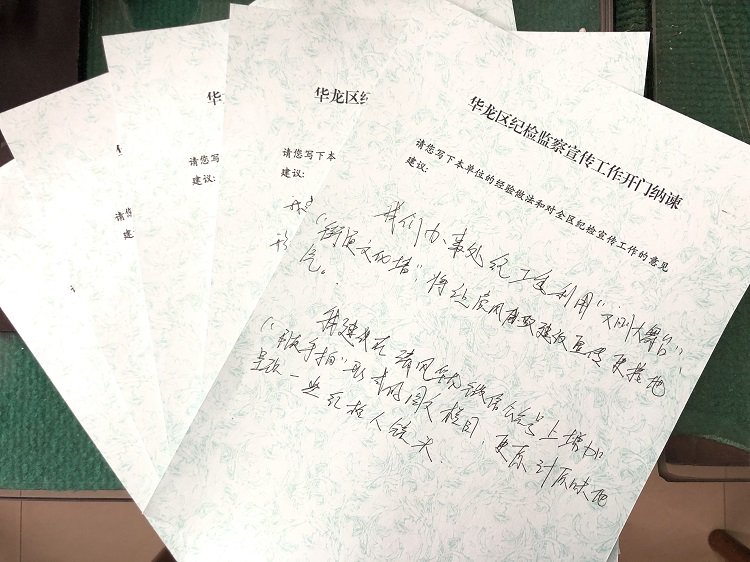 华
请您
建
华
请您写
建议:
华龙区纪
请您写下本
建议:
华龙区纪检监察宣传工作开门纳谏
请您写下本单位的经验做法和对全区纪检宣传工作的意见
建议:
我们办事处纪工委利用“大舞台”
“街道文化墙”,将党风廉政建设宣传更接地
气。
我建议在清风华龙微信公众号上增加
“随手拍”形式的图文栏目,更原汁原味地
呈现一些纪检人镜头.